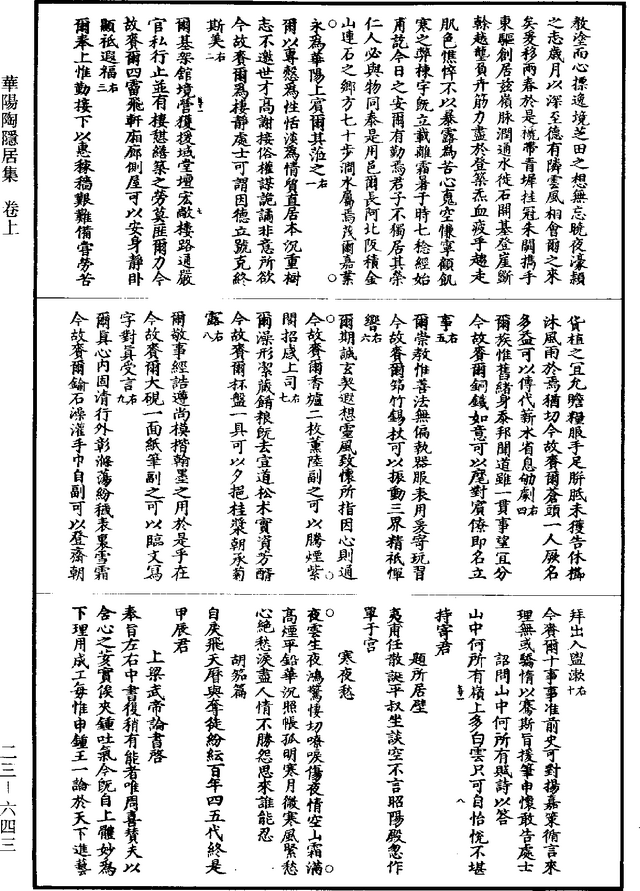 教塗而心摽遶境芝田之想無忘曉夜濠潁
之志歲月以深至德有隣雲風相會爾之來
矣爰移兩春於是褫帶青墀挂冠朱闕携手
東驅創居茲嶺脉澗通水徙石開基登崖斷
幹越壑負卉筋力盡於登築炁血疲乎趨走
肌色憔悴不以暴露為苦心魂空慊寧顧飢
寒之弊棟宇旣立載離霜暑于時七稔經始
甫說今日之安爾有勤焉君子不獨居其榮
仁人必與物同泰是用邑爾長阿北阪積金
山連石之鄉方七十步澗水屬焉茂爾嘉業
永為華陽上賓爾其蒞之右一
爾以專慤為性恬淡為情質直居本沉重樹
志不邀世才高謝接俗權謀詭譎非意所欲
今故賚爾為棲靜處士可謂因德立號克終
斯美右二
爾基架館境營獲援域堂壇宏敞樓路通嚴
官私行止並有棲憇繕築之勞莫匪爾力今
故賚爾四霤飛軒廂廊側屋可以安身靜卧
顯祗遐福右三
爾奉上惟勤接下以惠稼穡艱難備嘗勞苦
貨植之宜九贍糧服手足胼胝未獲告休櫛
沐風雨於焉猶切今故賚爾蒼頭一人厥名
多益可以傳代薪水省息劬劇右四
爾族惟舊緒身泰邦聞道雖一貫事望宜分
今故賚爾銅鐵如意可以麾對賓僚即名立
事右五
爾崇教惟善法無偏執器服表用爰寄玩習
今故賚爾筇竹錫杖可以振動三界精祇憚
響右六
爾期誠玄契遐想靈風致懷所指因心則通
今故賚爾香爐二枚薰陸副之可以騰煙紫
閣招感上司右七
爾澡形潔藏餚粮旣去宣道松朮實資芳醑
今故賚爾杯盤一具可以夕挹桂漿朝承菊
露右八
爾敬事經誥遵尚模楷翰墨之用於是乎在
今故賚爾大硯一面紙筆副之可以臨文寫
字對真受言右九
爾真心內固清行外彰滌蕩紛穢表裏雪霜
今故賚爾鍮石澡灌手巾自副可以登齋朝
拜出入盥漱右十
今賚爾十事事准前史可對揚嘉策脩言來
理無或驕惰以騫斯旨援筆申懷敢告處士
詔問山中何所有賦詩以答
山中何所有嶺上多白雲只可自怡悅不堪
持寄君
題所居壁
夷甫任散誕平叔坐談空不言昭陽殿忽作
單于宮
寒夜愁
夜雲生夜鴻驚悽切嘹唳傷夜情空山霜滿
高煙平鉛華沉照帳孤明寒月微寒風緊愁
心絕愁淚盡人情不勝怨思來誰能忍
胡笳篇
自戾飛天曆與奪徒紛紜百年四五代終是
甲辰君
上梁武帝論書啓
奉旨左右中書復稍有能者唯周喜贊夫以
含心之荄實俟夾鍾吐氣今旣自上體妙為
下理用成工每惟申鍾王一論於天下進藝
華陽陶隱居集　卷上
二三－六四三